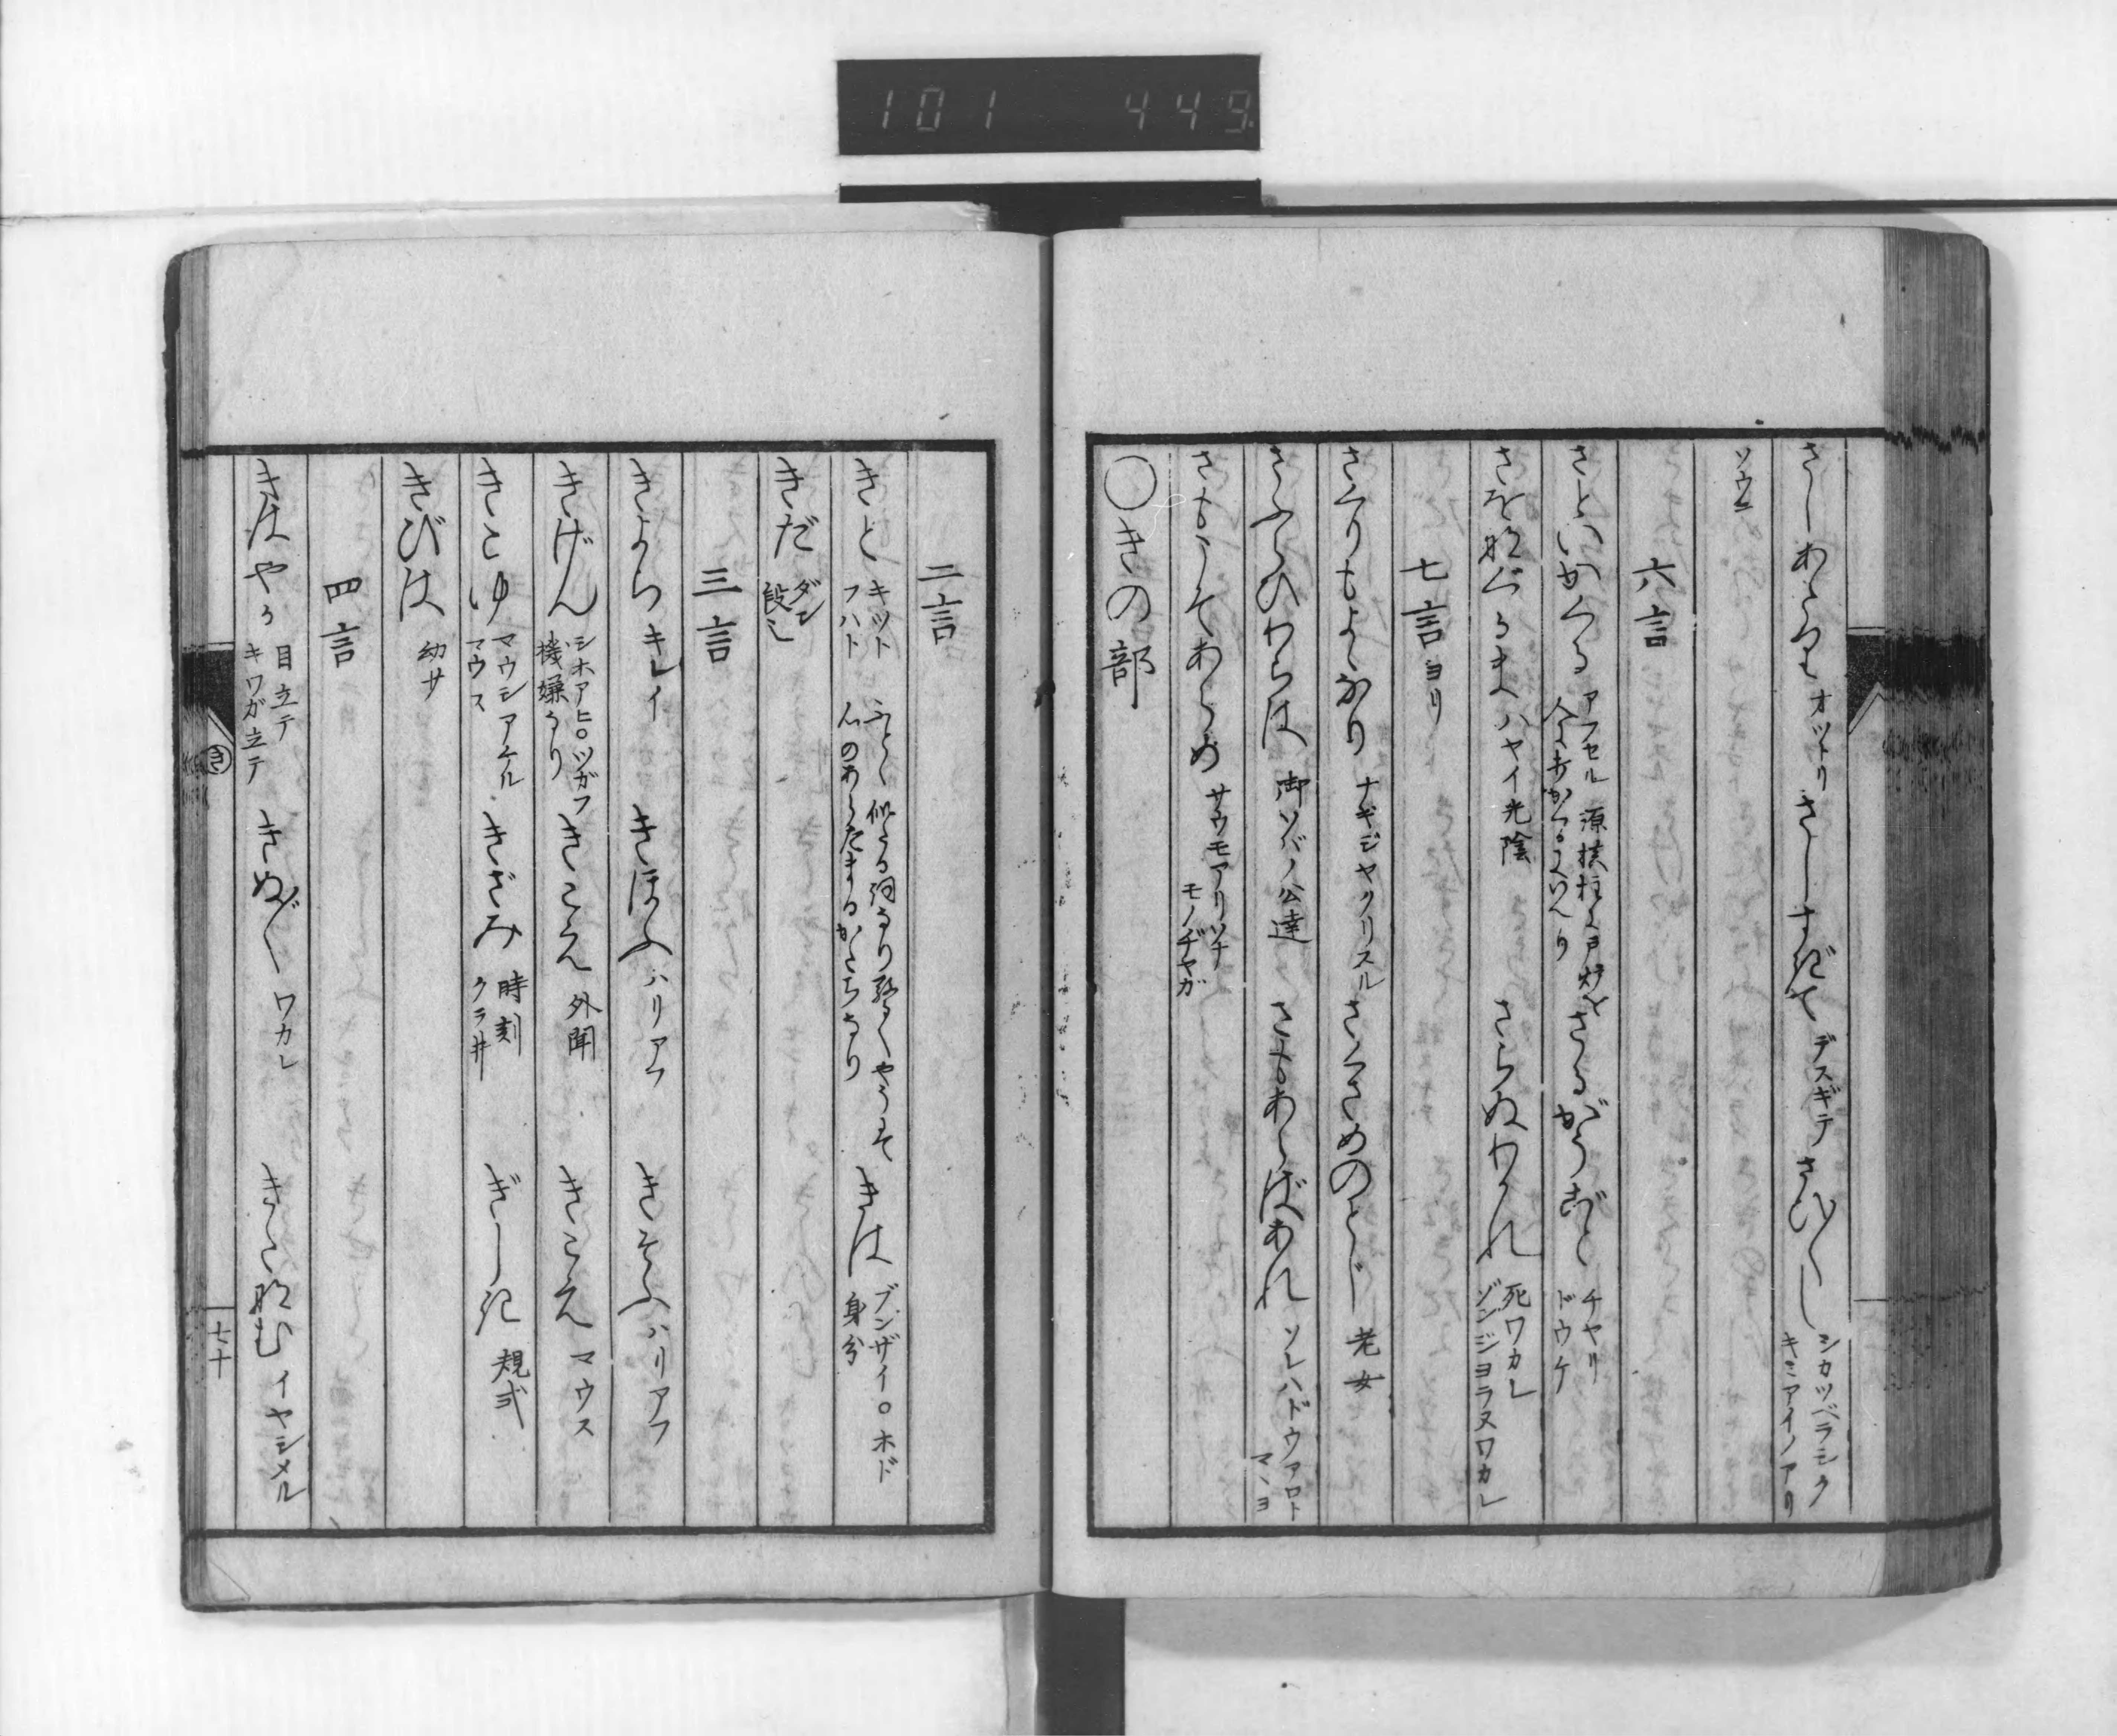 101 449
さしあふらむ オツトリ さしすぎて デスギテ さひ〳〵し シカツベラシク キミアイノアリ
ソウニ
六言
さといかくる アフセル
さを投ぐるま ハヤイ光陰 さらぬわかれ 死ワカレ ゾンジヨラヌワカレ
七言ヨリ
さくりもよゝなり ナキジヤクリスル さくさめのとじ 老女
さふらひわらは 御ソバノ公達 さもあらばあれ ソレハドウアロト マヽヨ
さもこそあらめ サウモアリソナ モノヂヤガ
○きの部
二言
きと キツト フハト きは ブンザイ○ホド 身分
きだ ダン 段也
三言
きよら キレイ きほふ ハリアフ きそふ ハリアフ
きげん シホアヒ○ツガフ 機嫌なり きこえ 外聞 きこえ マウス
きこゆ マウシアケル マウス きざみ 時刻 クラ井 ぎしき 規式
きびは 幼サ
四言
きはやか 目立テ キワガ立テ きぬ〴〵 ワカレ きこ投む イヤシメル
き
七十